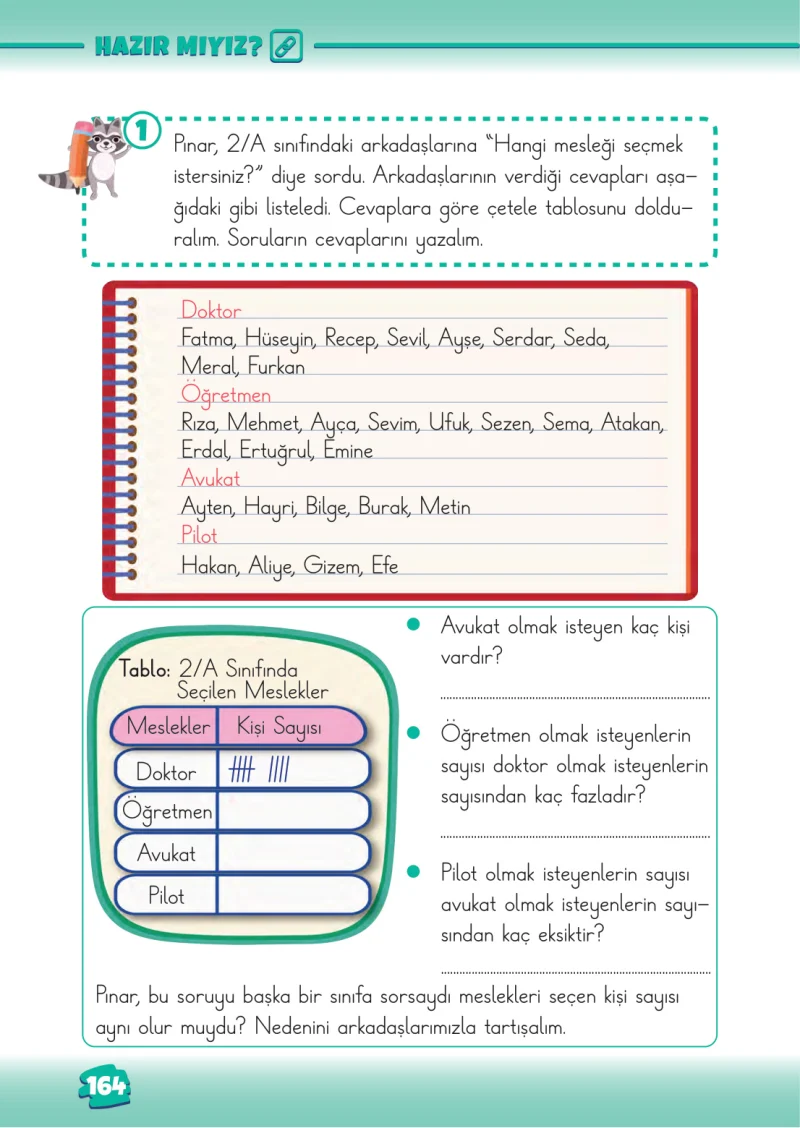 HAZIR MIYIZ?
1
Pınar, 2/A sınıfındaki arkadaşlarına “Hangi mesleği seçmek
istersiniz?” diye sordu. Arkadaşlarının verdiği cevapları aşa-
ğıdaki gibi listeledi. Cevaplara göre çetele tablosunu doldu-
ralım. Soruların cevaplarını yazalım.
Doktor
Fatma, Hüseyin, Recep, Sevil, Ayşe, Serdar, Seda,
Meral, Furkan
Öğretmen
Rıza, Mehmet, Ayça, Sevim, Ufuk, Sezen, Sema, Atakan,
Erdal, Ertuğrul, Emine
Avukat
Ayten, Hayri, Bilge, Burak, Metin
Pilot
Hakan, Aliye, Gizem, Efe
Tablo: 2/A Sınıfında
Seçilen Meslekler
Meslekler Kişi Sayısı
Doktor
Öğretmen
Avukat
Pilot
Avukat olmak isteyen kaç kişi
vardır?
Öğretmen olmak isteyenlerin
sayısı doktor olmak isteyenlerin
sayısından kaç fazladır?
Pilot olmak isteyenlerin sayısı
avukat olmak isteyenlerin sayı-
sından kaç eksiktir?
Pınar, bu soruyu başka bir sınıfa sorsaydı meslekleri seçen kişi sayısı
aynı olur muydu? Nedenini arkadaşlarımızla tartışalım.
164